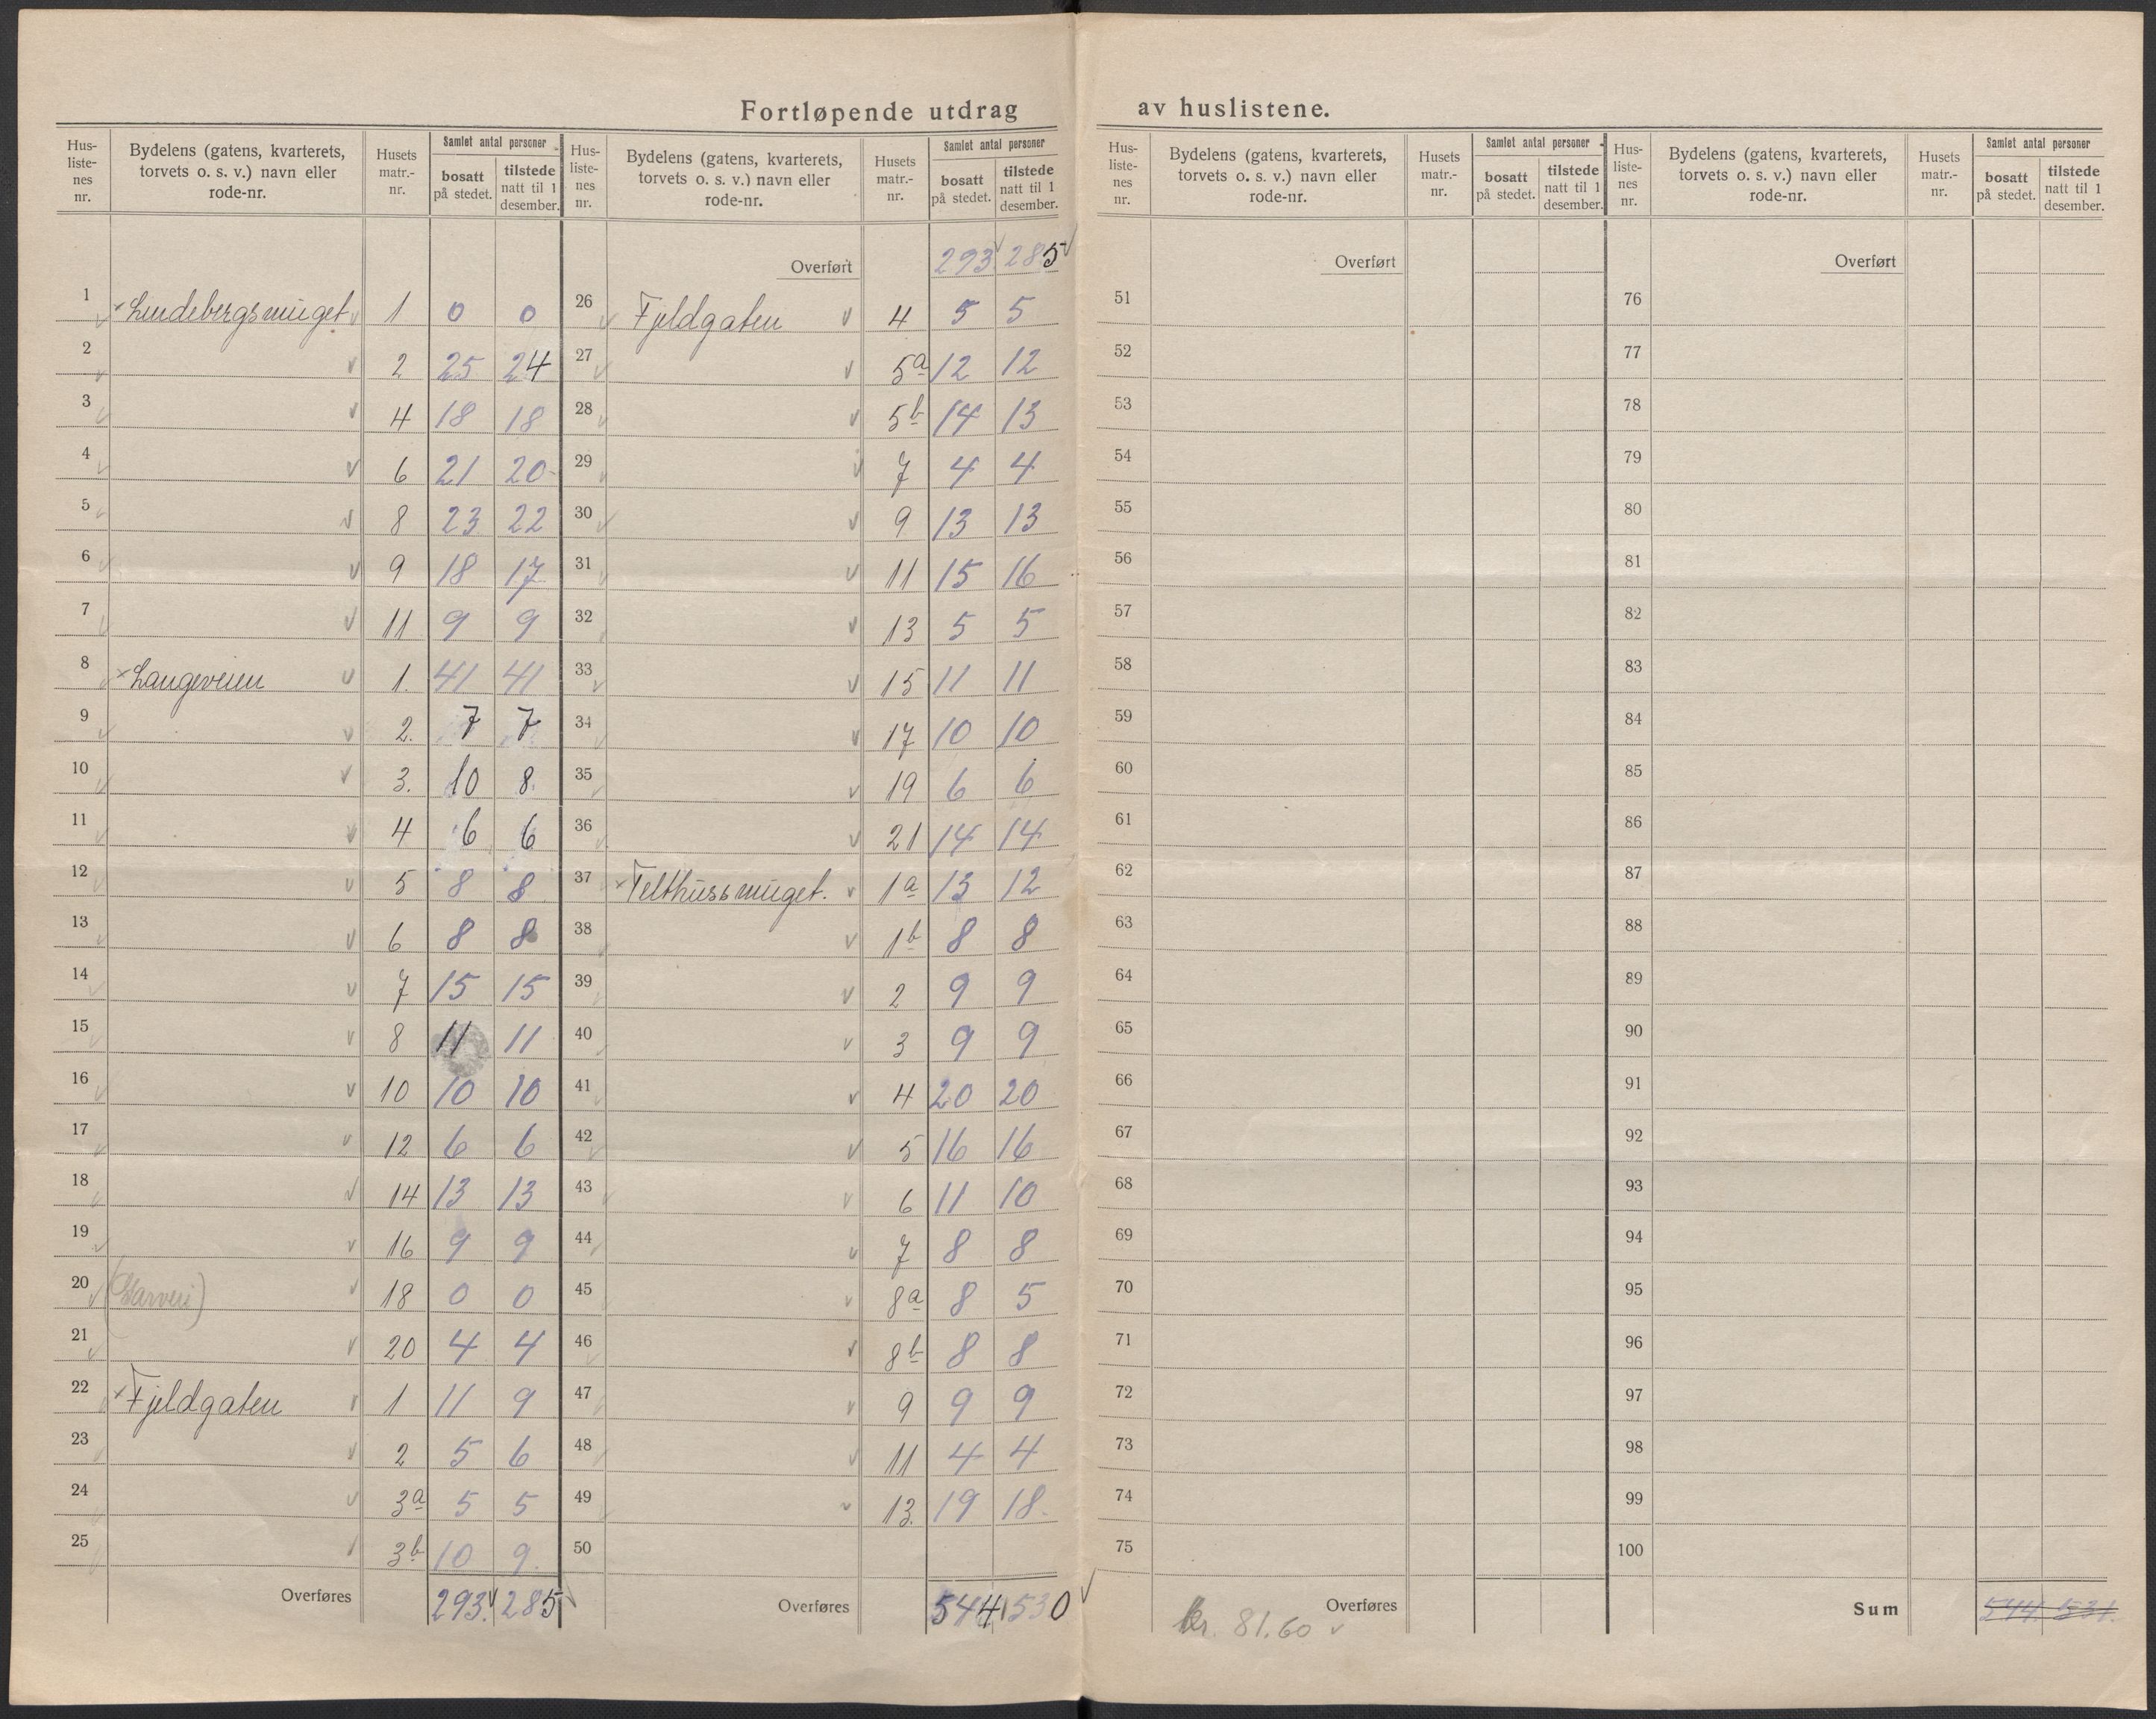 Fortløpende utdrag av huslistene.
Hus-liste-nes nr. | Bydelens (gatens, kvarterets, torvets o. s. v.) navn eller rode-nr. | Husets matr.-nr. | Samlet antal personer | bosatt på stedet. | tilstede natt til 1 desember.
1 Lundebergsmuget 1 0 0
2 2 25 24
3 4 18 18
4 6 21 20
5 8 23 22
6 9 18 17
7 11 9 9
8 Langeveien 1. 41 41
9 2. 7 7
10 3. 10 8.
11 4 6 6
12 5 8 8
13 6 8 8
14 7 15 15
15 8 11 11
16 10 10 10
17 12 6 6
18 14 13 13
19 16 9 9
20 (Garveri) 18 0 0
21 20 4 4
22 Fjeldgaten 1 11 9
23 2 5 6
24 3a 5 5
25 3b 10 9.
Overføres 293. 285
Hus-liste-nes nr. | Bydelens (gatens, kvarterets, torvets o. s. v.) navn eller rode-nr. | Husets matr.-nr. | Samlet antal personer | bosatt på stedet. | tilstede natt til 1 desember.
Overført 293 285
26 Fjeldgaten 4 5 5
27 5a 12 12
28 5b 14 13
29 7 4 4
30 9 13 13
31 11 15 16
32 13 5 5
33 15 11 11
34 17 10 10
35 19 6 6
36 21 14 14
37 Telthussmuget. 1a 13 12
38 1b 8 8
39 2 9 9
40 3 9 9
41 4 20 20
42 5 16 16
43 6 11 10
44 7 8 8
45 8a 8 5
46 8b 8 8
47 9 9 9
48 11 4 4
49 13. 19 18.
50
Overføres 544 530
Hus-liste-nes nr. | Bydelens (gatens, kvarterets, torvets o. s. v.) navn eller rode-nr. | Husets matr.-nr. | Samlet antal personer | bosatt på stedet. | tilstede natt til 1 desember.
Overført
51
52
53
54
55
56
57
58
59
60
61
62
63
64
65
66
67
68
69
70
71
72
73
74
75
Overføres
kr. 81.60
Hus-liste-nes nr. | Bydelens (gatens, kvarterets, torvets o. s. v.) navn eller rode-nr. | Husets matr.-nr. | Samlet antal personer | bosatt på stedet. | tilstede natt til 1 desember.
Overført
76
77
78
79
80
81
82
83
84
85
86
87
88
89
90
91
92
93
94
95
96
97
98
99
100
Sum 544. 531.